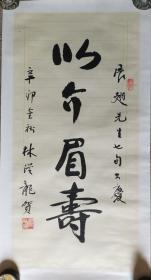 展翅先生七旬大慶
以介眉壽
辛卯金秋 林從龍賀